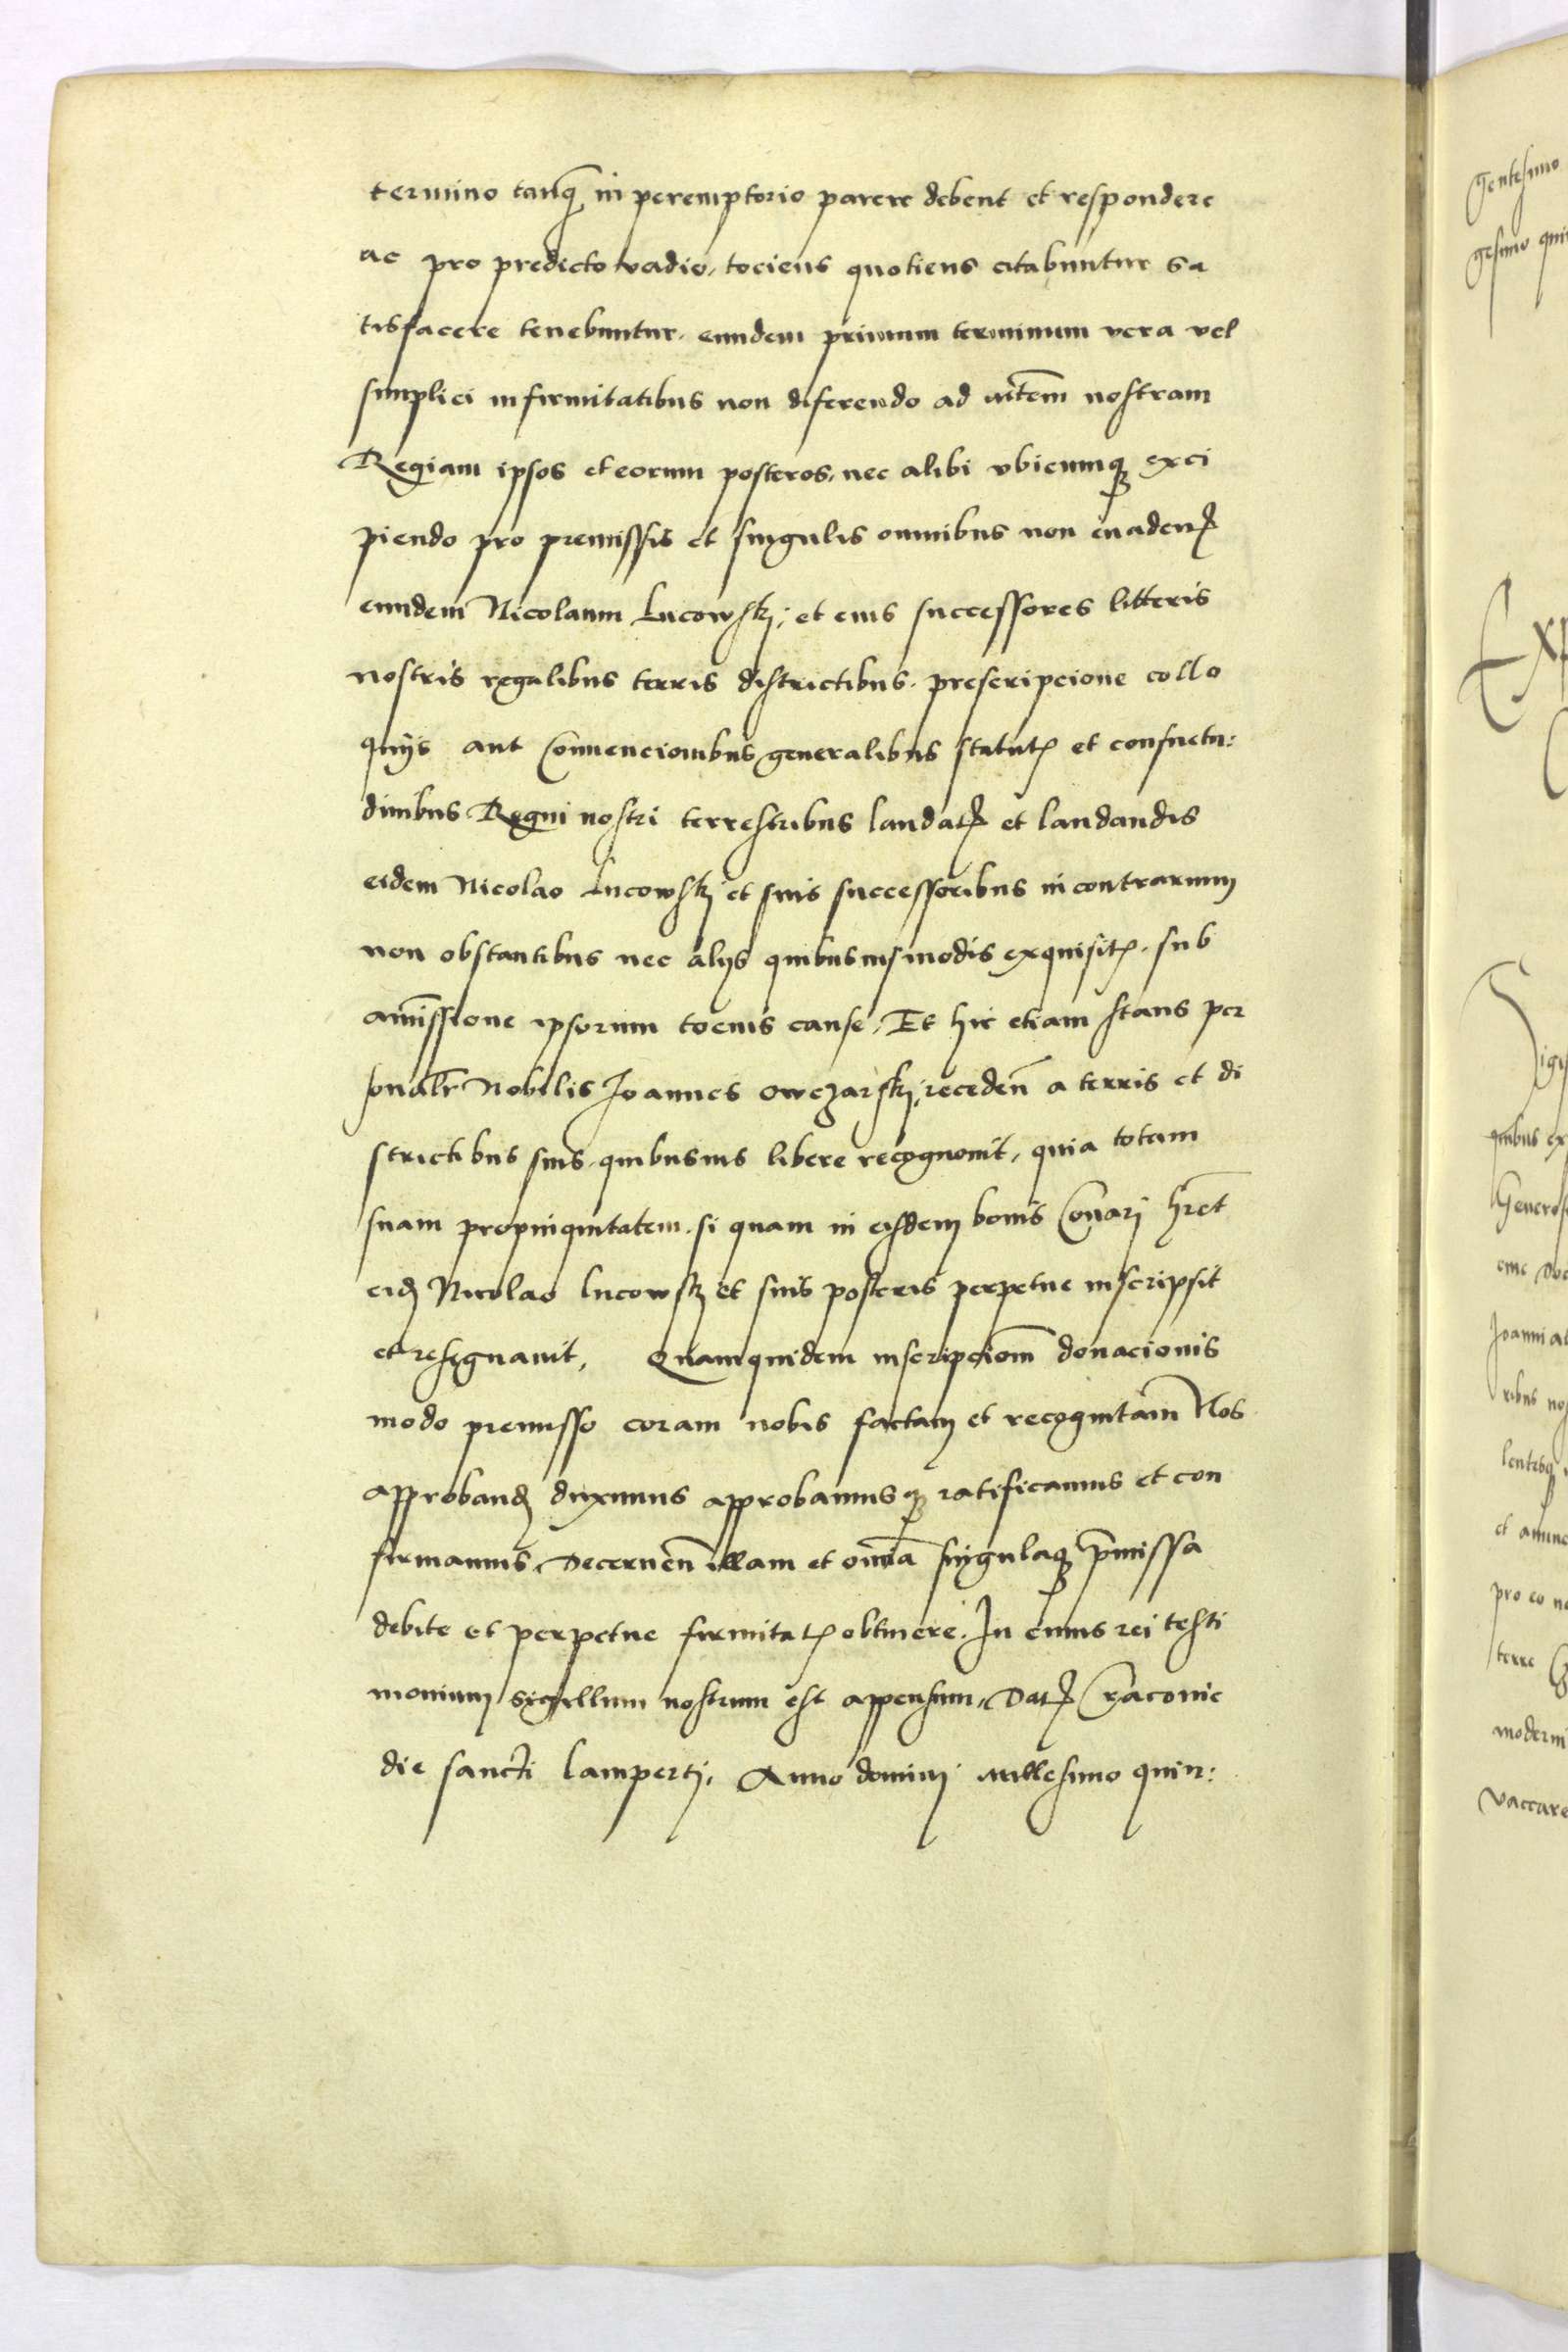 termino tanq̃ in peremptorio parere debent et respondere
ac pro predicto vadio, tociens quotiens citabuntur sa
tisfacere tenebuntur. eundem primum terminum vera vel
simplici infirmitatibus non diferendo ad nostram
Regiam ipsos et eorum posteros, nec alibi vbicumq; exci
piendo pro premissis et singulis omnibus non euadenꝭ
eundem Nicolaum Lucowskj, et eius successores litteris
nostris regalibus terris districtibus. prescripcione collo
quijs aut Conuencionibus generalibus statutꝭ et consuetu:
dinibus Regni nostri terrestribus laudatꝭ et laudandis
eidem Nicolao Lucowskj et suis successoribus in contrarium
non obstantibus nec alijs quibusuis modis exquisitꝭ. sub
amissione ipsorum tocius cause, Et hic etiam stans per
sonalr̃ Nobilis Joannes Owczarskj, receden̄ a terris et di
strictibus suis. quibusuis libere recognouit, quia totam
suam propinquitatem. si quam in eisdem bonis Conarj hret̃
eidꝫ Nicolao Lucowskj et suis posteris perpetue inscripsit
et resignauit, Quamquidem inscripciom̄ donacionis
modo premisso coram nobis factam et recognitam̄ Nos
approbandꝫ duximus approbamusq; ratificamus et con
firmamus. Decernen̄ illam et omīa singulaq; p̄missa
debite et perpetue firmitatꝭ obtinere. In cuius rei testi
monium sigillum nostrum est appensum, Datꝭ Cracouie
die sancti Lampertj, Anno dominj millesimo quin:
gentesimo
Gene
Joanni
et
pro eo
terre
moderni
vaccare